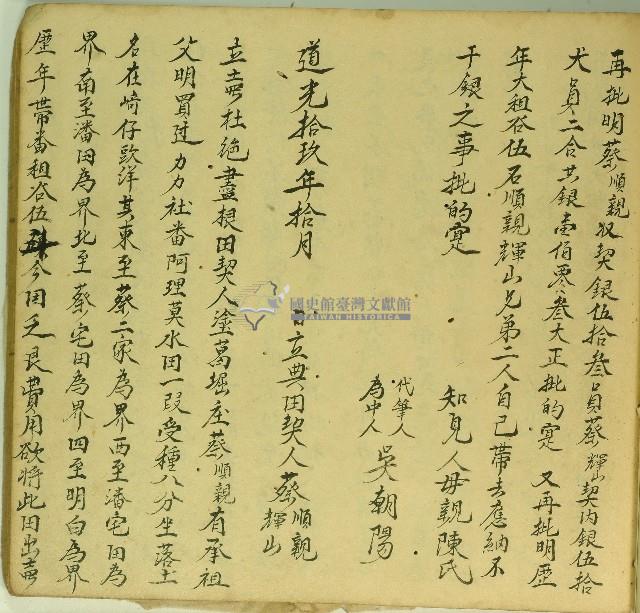 再批明蔡順親収契銀伍拾叁員蔡輝山契内銀伍拾
大員二合共銀壹佰零叁大正批的寔 又再批明歷
年大租谷伍石順親輝山兄弟二人自己帶去應納不
干銀之事批的寔
知見人母親陳氏
代筆人
為中人 吳朝陽
道光拾玖年拾月 日立典田契人蔡順親
輝山
立賣杜絕盡根田契人塗葛堀庄蔡順親有承祖
父明買過力力社番阿理莫水田一段受種八分坐落土
名在崎仔頭洋其東至蔡二家為界西至潘宅田為
界南至潘田為界北至蔡宅田為界四至明白為界
歷年帶番租谷伍 今因乏艮費用欲將此田出賣
國史館臺灣文獻館
TAIWAN HISTORICA